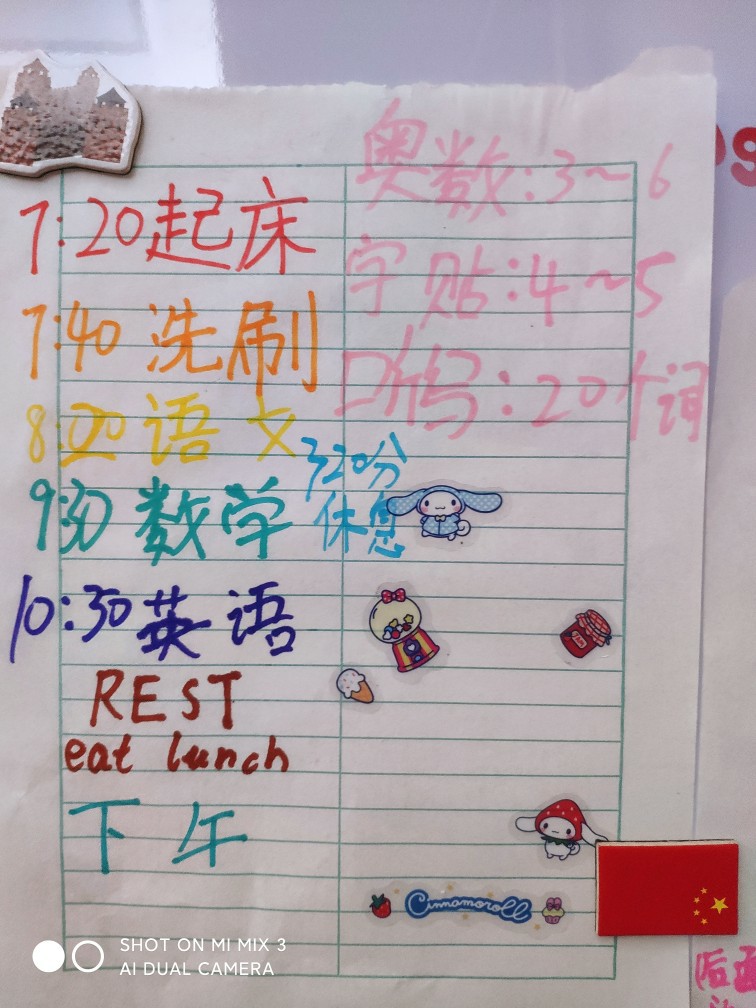 7:20起床
7:40 洗刷
8:00 语文
9:30 数学
10:30英语
REST
eat lunch
下午
奥数:3~6
字贴:4~5
:20个词
20分
休息
Cinnamoroll
SHOT ON MI MIX 3
AI DUAL CAMERA
后面